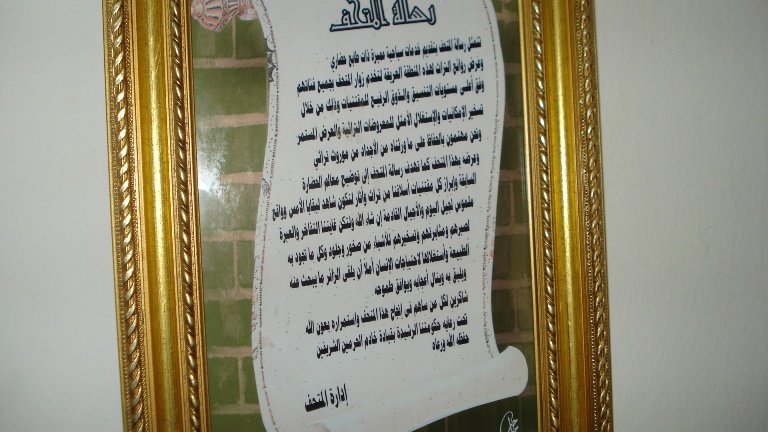 رسالة المتحف
تتمثل رسالة المتحف بتقديم خدمات سياحية مميزة ذات طابع حضاري
وعرض روائع التراث لهذه المنطقة العريقة لتخدم زوار المتحف بجميع فئاتهم
وفق أعلى مستويات التنسيق والذوق الرفيع للمقتنيات وذلك من خلال
تسخير الإمكانيات والإستغلال الأمثل للمعروضات التراثية والعرض المستمر
ونحن مهتمون بالحفاظ على ما ورثناه من الأجداد من موروث تراثي
وعرضه بهذا المتحف كما تهدف رسالة المتحف إلى توضيح معالم الحضارة
السابقة وإبراز كل مقتنيات أسلافنا من تراث وآثار لتكون شاهد لبقايا الأمس وواقع
ملموس لجيل اليوم والأجيال القادمة إن شاء الله ولتكن غايتنا التفاخر والعبرة
لصبرهم ومثابرتهم وتسخيرهم للأشياء من صخور وجلود وكل ما تجود به
الطبيعة وأستغلالها لاحتياجات الانسان أملاً أن يلقى الزائر ما يبحث عنه
ويليق به وينال أعجابه ويوافق طموحه
شاكرين لكل من ساهم في إنجاح هذا المتحف واستمراره بعون الله
تحت رعاية حكومتنا الرشيدة بقيادة خادم الحرمين الشريفين
حفظه الله ورعاه
إدارة المتحف